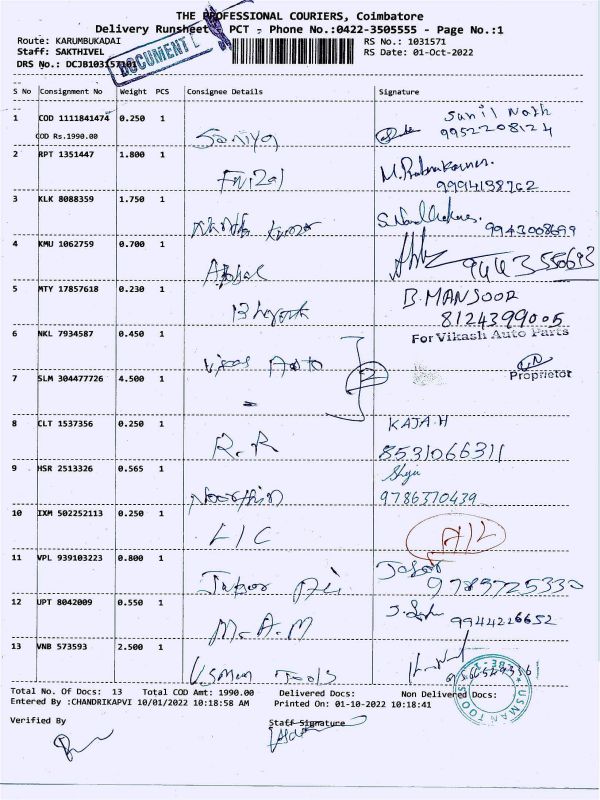 THE PROFESSIONAL COURIERS, Coimbatore
Delivery Runsheet PCT - Phone No.:0422-3505555 - Page No.:1
Route: KARUMBUKADAI RS No.: 1031571
Staff: SAKTHIVEL RS Date: 01-Oct-2022
DRS No.: DCJB103157101
DOCUMENT
S No Consignment No Weight PCS Consignee Details Signature
1 COD 1111841474 0.250 1 Saniya Sunil Nath
COD Rs.1990.00 9952208124
2 RPT 1351447 1.800 1
9994138762
3 KLK 8088359 1.750 1
4 KMU 1062759 0.700 1
5 MTY 17857618 0.230 1 B.MANSOOR
8124399005
6 NKL 7934587 0.450 1 For Vikash Auto Parts
Auto
7 SLM 304477726 4.500 1 Proprietor
8 CLT 1537356 0.250 1 R.R KAJA.H
8531066311
9 HSR 2513326 0.565 1
9786370439
10 IXM 502252113 0.250 1 LIC
11 VPL 939103223 0.800 1 Jafar
9789725330
12 UPT 8042009 0.550 1 M.A.M 9944226652
13 VNB 573593 2.500 1 Usman Tools
USMAN TOOLS
Total No. Of Docs: 13 Total COD Amt: 1990.00 Delivered Docs: Non Delivered Docs:
Entered By :CHANDRIKAPVI 10/01/2022 10:18:58 AM Printed On: 01-10-2022 10:18:41
Verified By Staff Signature